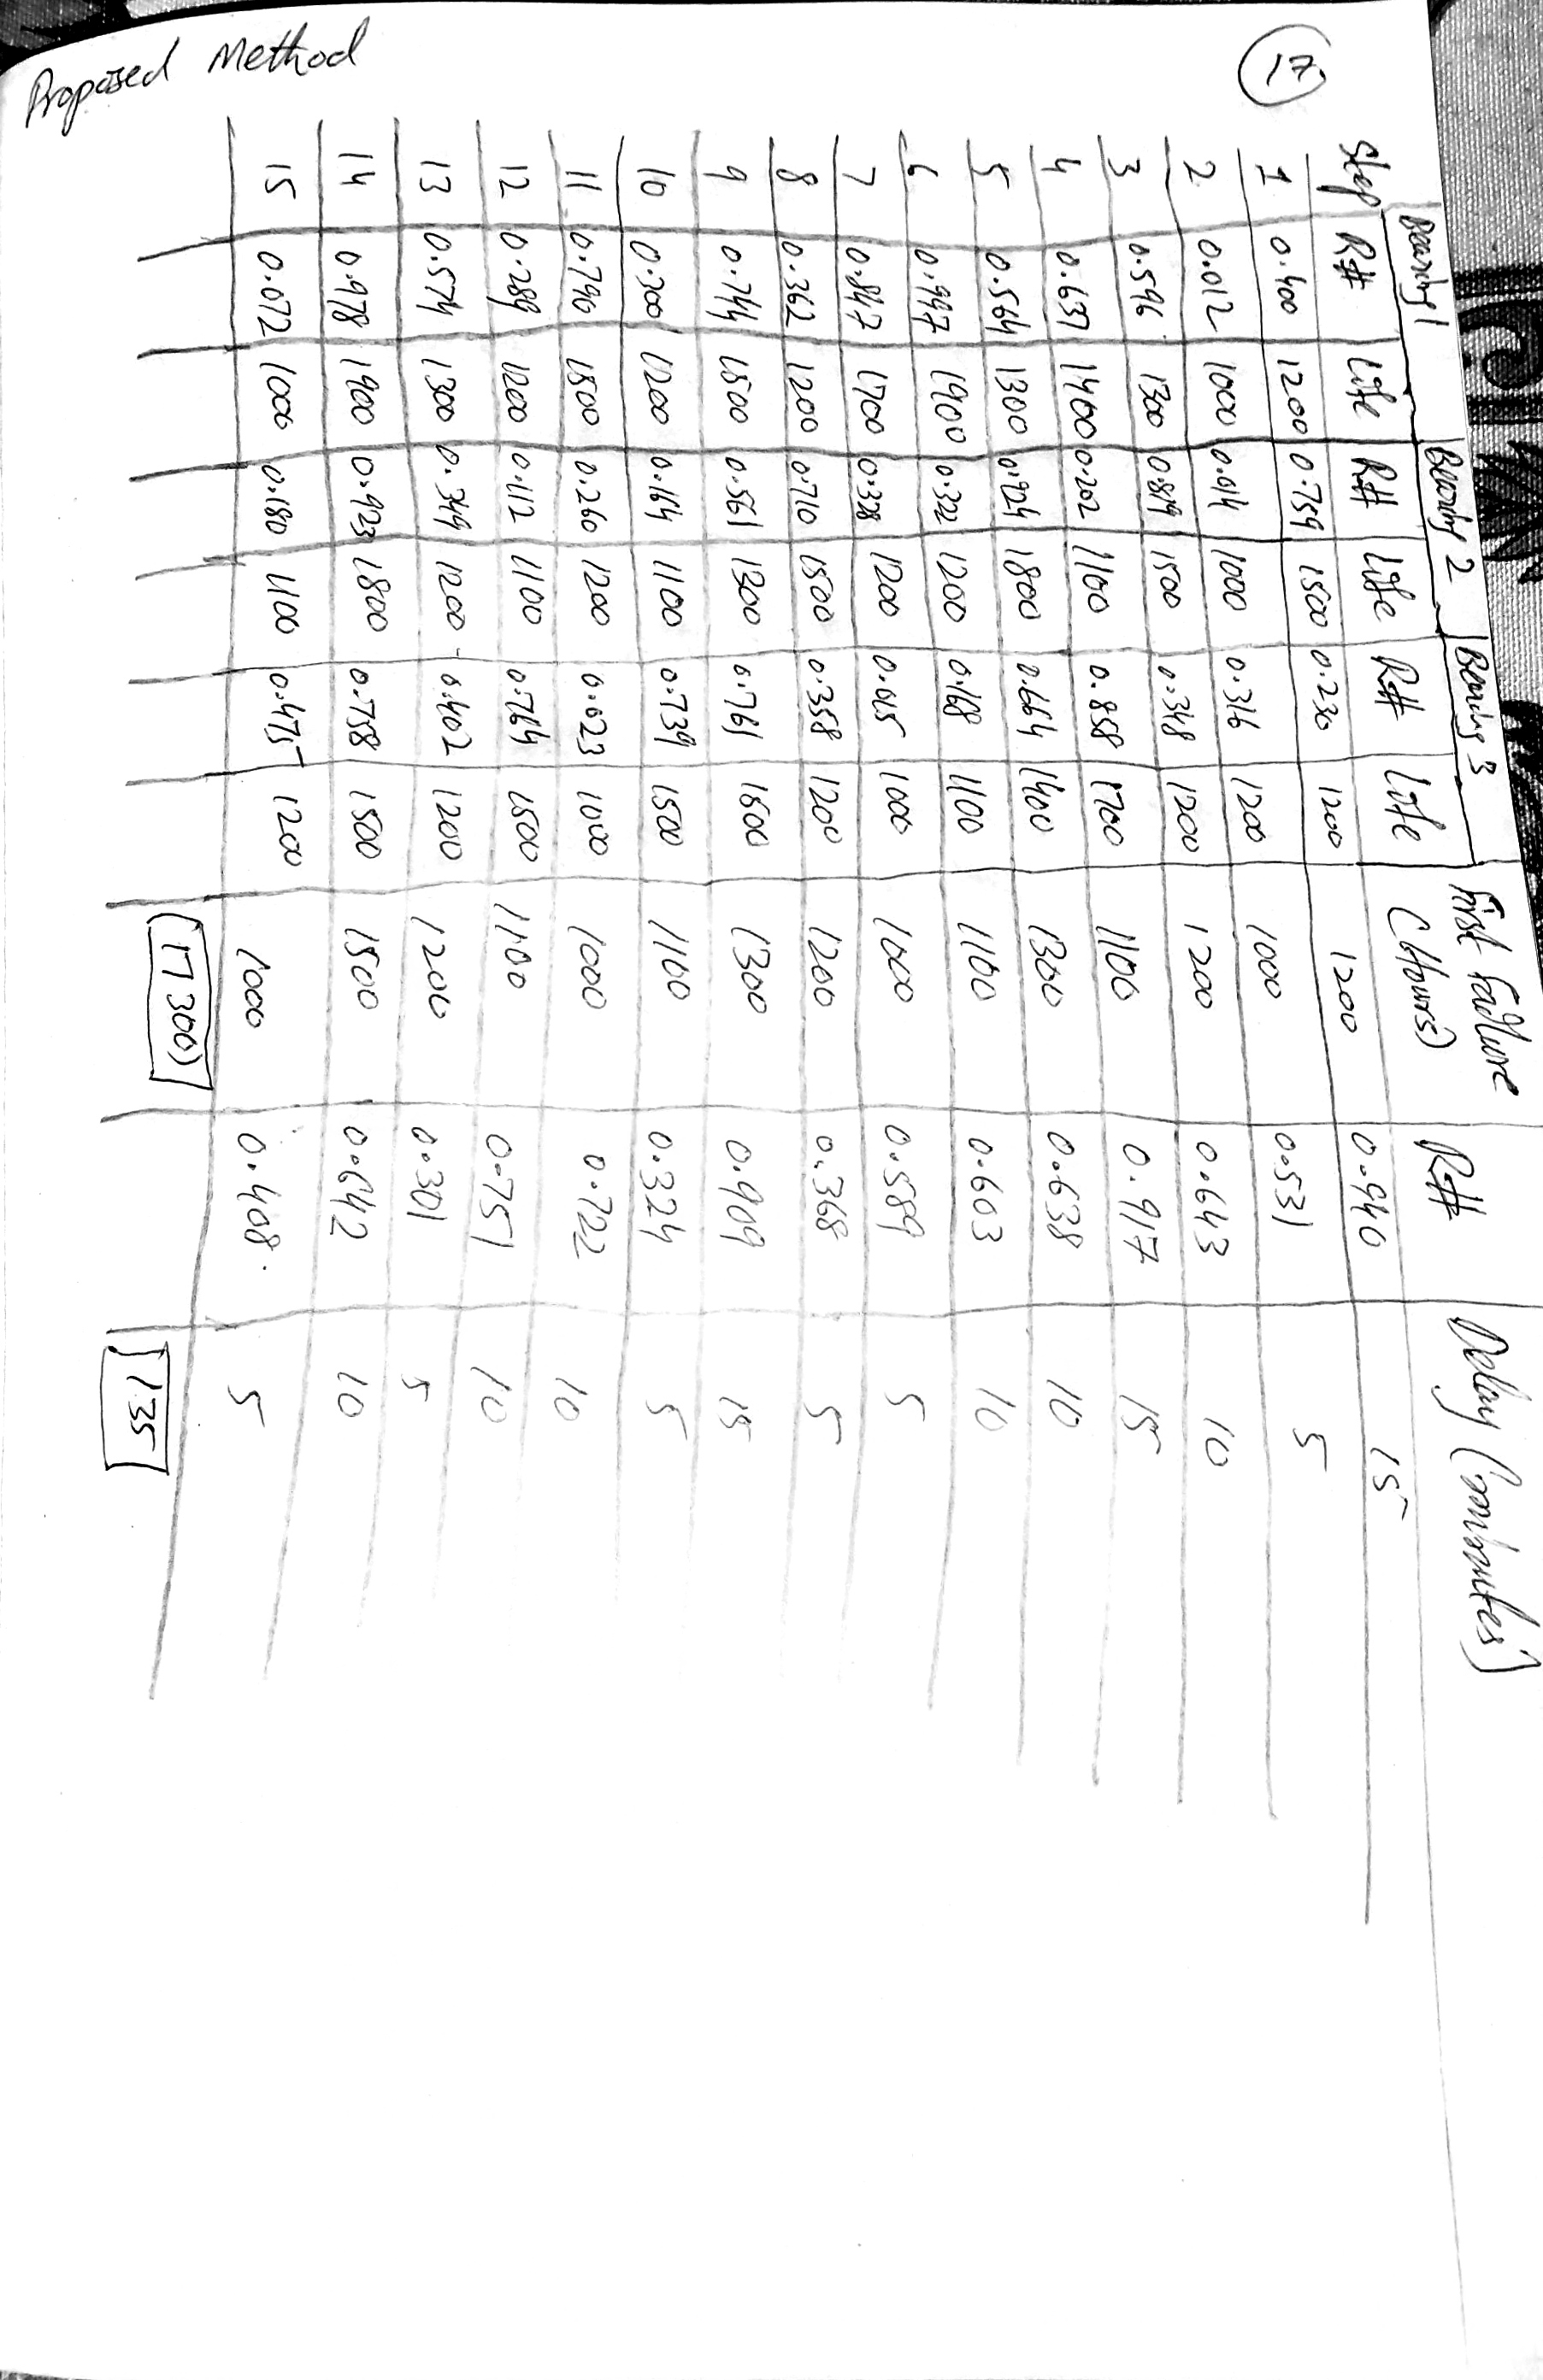 17.
Proposed Method
Bearing 1 Bearing 2 Bearing 3 First Failure
Step R# Life R# Life R# Life (Hours) R# Delay (minutes)
1 0.400 1200 0.759 1500 0.230 1200 1200 0.940 15
2 0.012 1000 0.014 1000 0.316 1200 1000 0.531 5
3 0.596 1300 0.859 1500 0.348 1200 1200 0.643 10
4 0.637 1400 0.202 1100 0.858 1700 1100 0.917 15
5 0.564 1300 0.924 1800 0.664 1400 1300 0.638 10
6 0.997 1900 0.322 1200 0.168 1100 1100 0.603 10
7 0.847 1700 0.328 1200 0.015 1000 1000 0.589 5
8 0.362 1200 0.710 1500 0.358 1200 1200 0.368 5
9 0.744 1500 0.561 1300 0.761 1600 1300 0.909 15
10 0.300 1200 0.164 1100 0.739 1500 1100 0.324 5
11 0.790 1500 0.260 1200 0.023 1000 1000 0.722 10
12 0.289 1200 0.112 1100 0.764 1500 1100 0.751 10
13 0.574 1300 0.349 1200 0.402 1200 1200 0.301 5
14 0.978 1900 0.923 1800 0.758 1500 1500 0.642 10
15 0.072 1000 0.180 1100 0.475 1200 1000 0.408. 5
17300 135